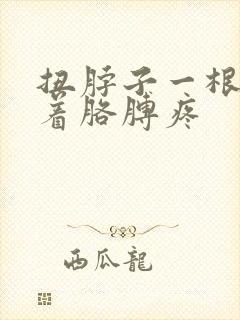 扭脖子一根
着胳膊疼
西瓜龍